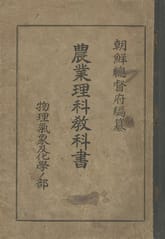 朝鮮總督府編纂
農業理科教科書
物理氣象及化學ノ部